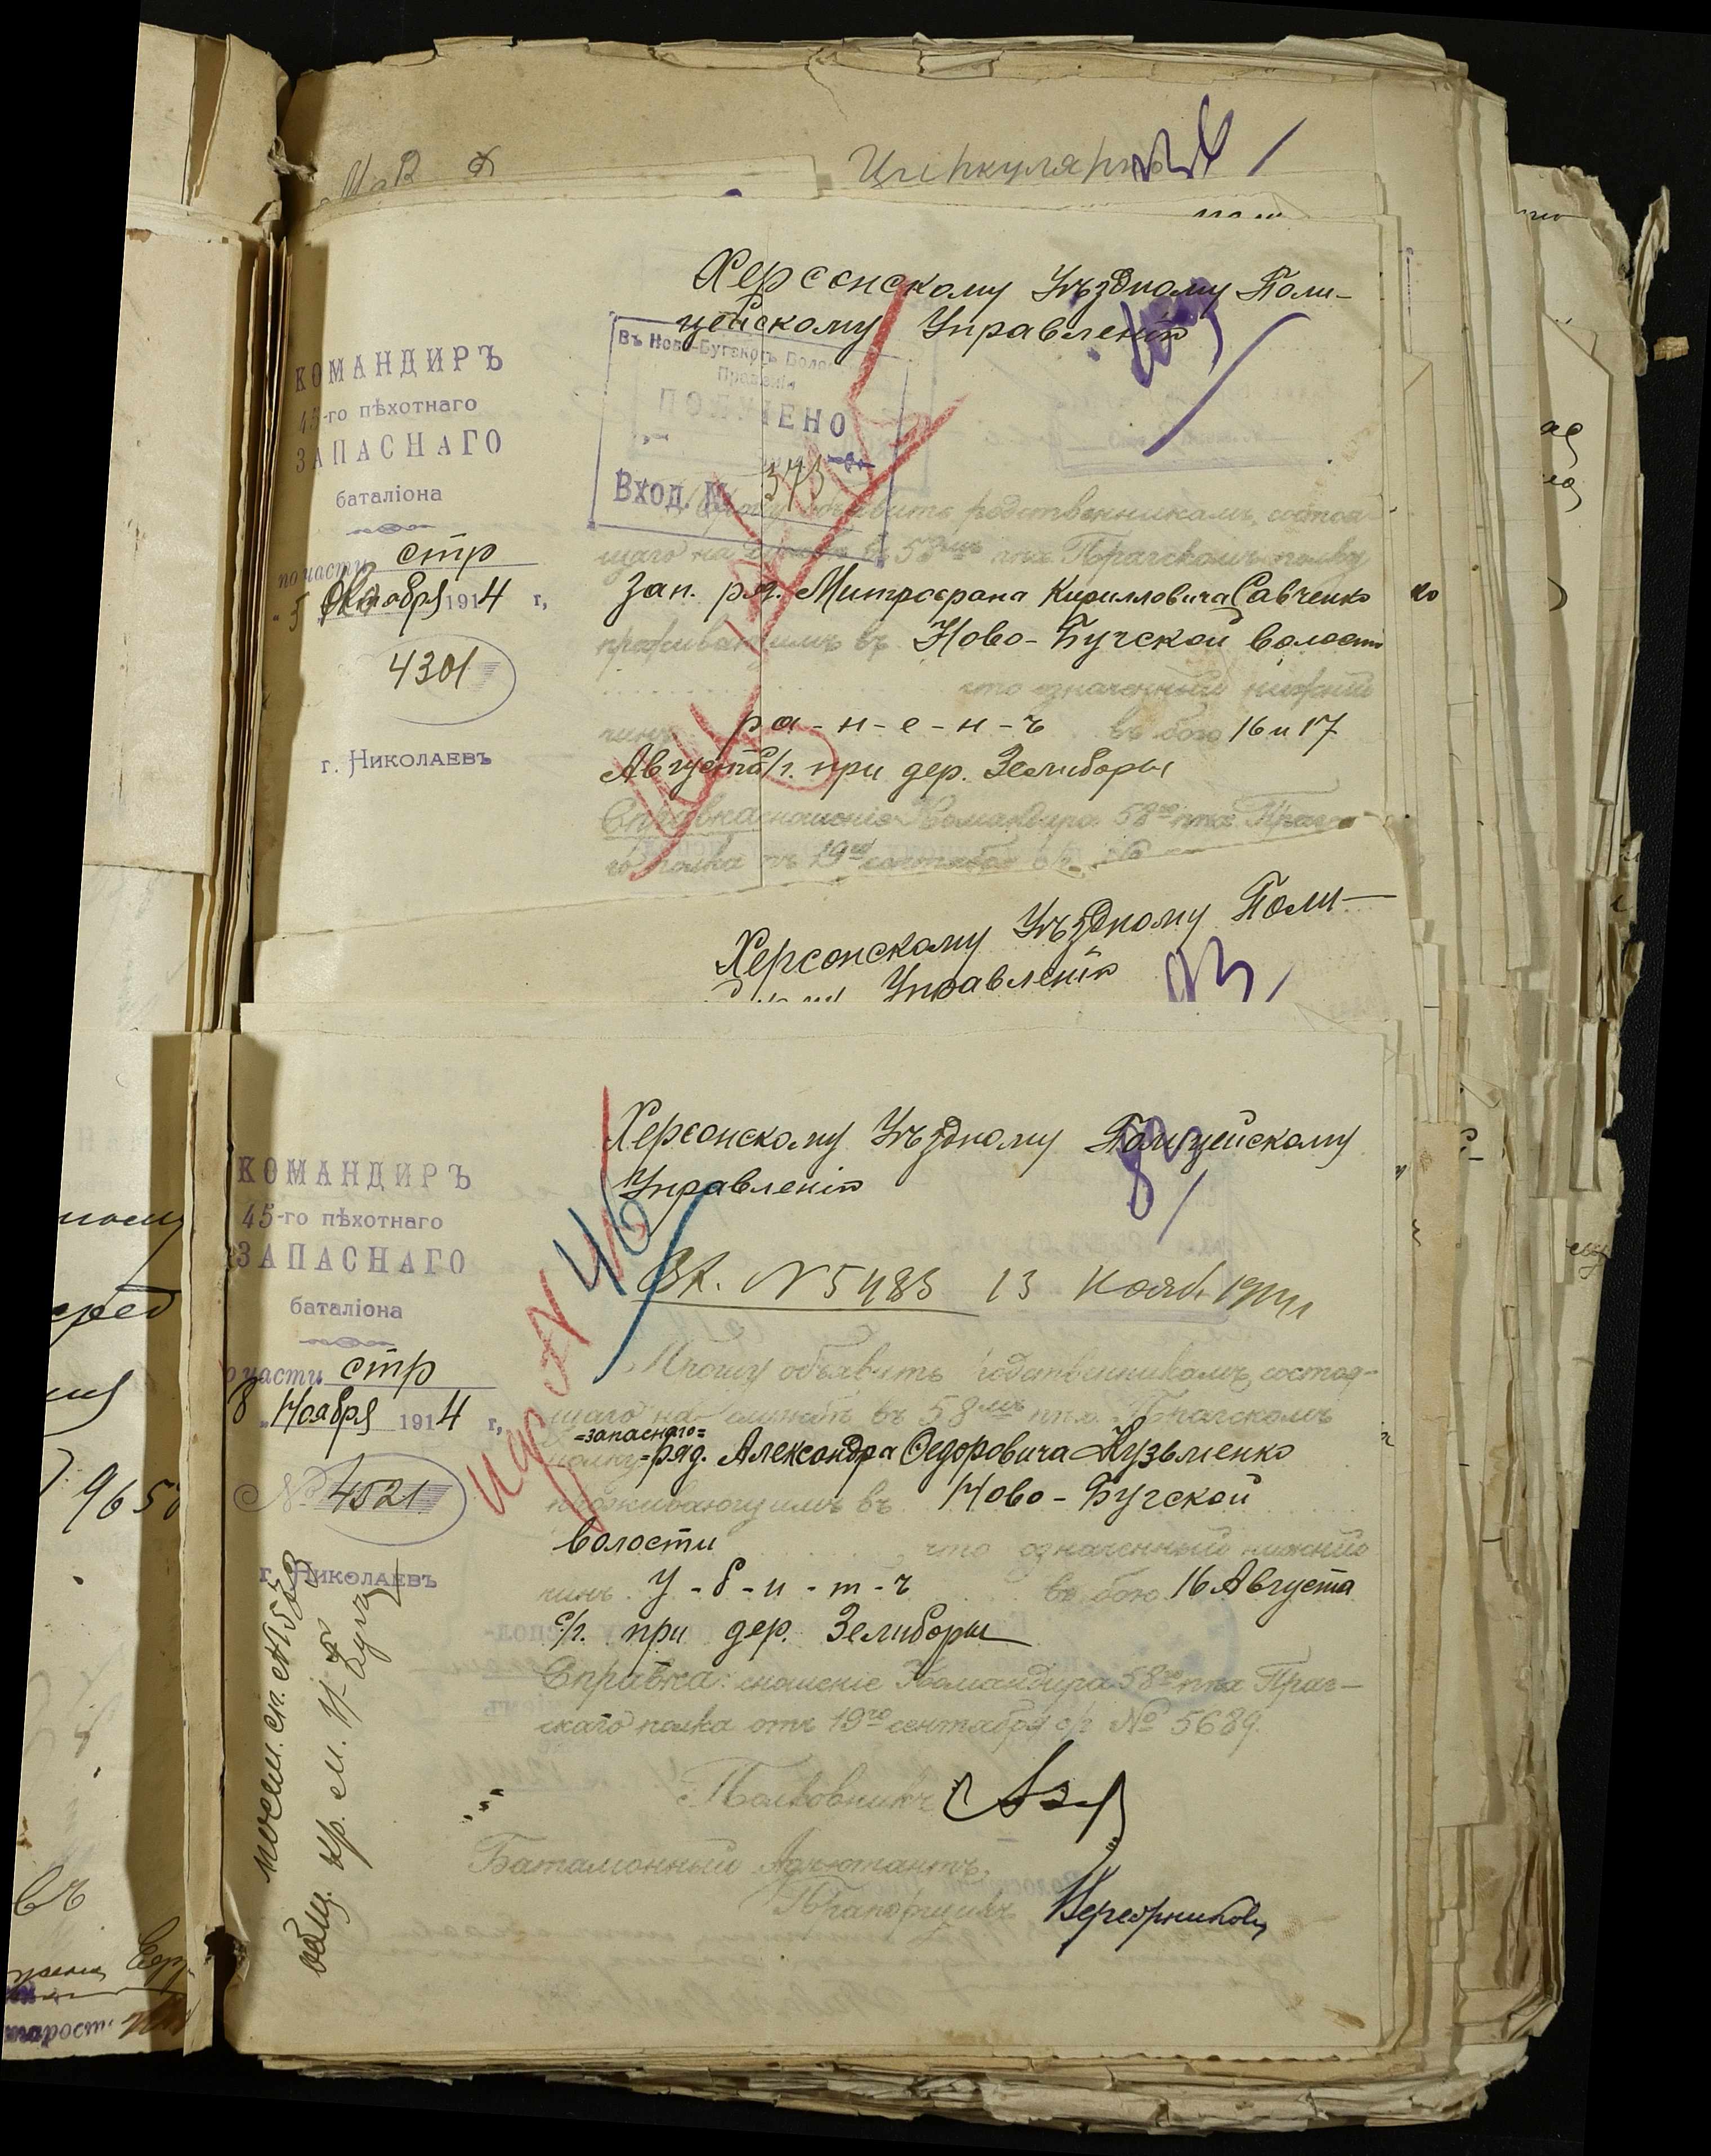 Циркулярно
Херсонскому Уѣздному Поли-
цейскому Управленію
КОМАНДИРЪ
45-го пѣхотнаго
ЗАПАСНАГО
баталіона
по части стр
5 Октября 1914 г,
4301
г. НИКОЛАЕВЪ
Въ Ново-Бугском Воло
Правленіи
ПОЛУЧЕНО
Вход. №
Прошу объявить родственникамъ, состоя-
щаго на службѣ въ 58мъ пѣх. Прагскомъ полку
Зап. ряд. Митрофана Кирилловича Савченко
проживающимъ въ Ново-Бугской волости
что означенный нижній
чинъ ра-н-е-н-ъ въ бою 16 и 17
Августа с/г. при дер. Зелиборы
Справка: сношеніе Командира 58го пѣх. Праг
го полка отъ 19го сентября с/г. №
Херсонскому Уѣздному Поли-
Управленію
Херсонскому Уѣздному Полицейскому
Управленію
КОМАНДИРЪ
45-го пѣхотнаго
ЗАПАСНАГО
баталіона
о части стр
8 Ноября 1914 г,
№ 4521
г. НИКОЛАЕВЪ
Вх. № 5483 13 Нояб. 1914 г
Прошу объявить родственникамъ, состоя-
щаго на службѣ въ 58мъ пѣх. Прагскомъ
=запаснаго=
полку=ряд. Александра Ѳедоровича Кузьменко
проживающимъ въ Ново-Бугской
волости, что означенный нижній
чинъ У-б-и-т-ъ въ бою 16 Августа
с/г. при дер. Зелиборы
Справка: сношеніе Командира 58го пѣх. Праг-
скаго полка отъ 19го сентября с/г № 5689.
Полковникъ
Баталіонный Адъютантъ,
Прапорщикъ